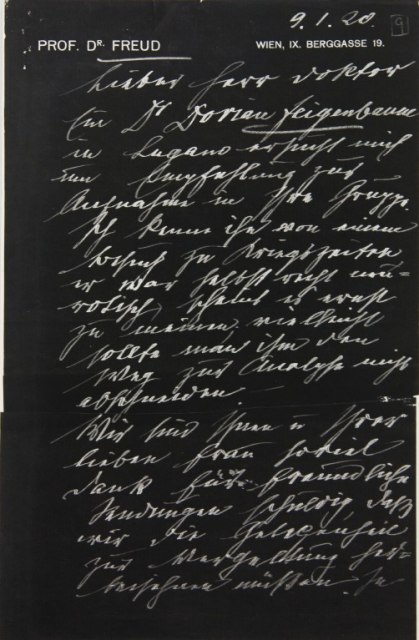 9.1.20
PROF. DR. FREUD
WIEN, IX. BERGGASSE 19.
Lieber Herr Doktor
Ein Dr Dorian Feigenbaum
in Lugano ersucht mich
um Empfehlung zur
Aufnahme in Ihre Gruppe.
Ich kenne ihn von einem
Besuch zu Kriegszeiten
er war selbst recht neu-
rotisch, scheint es ernst
zu meinen, vielleicht
sollte man ihm den
Weg zur Analyse nicht
abschneiden.
Wir sind Ihnen u Ihrer
lieben Frau soviel
Dank für freundliche
Sendungen schuldig daß
wir die Gelegenheit
zur Vergeltung her-
müssen. In